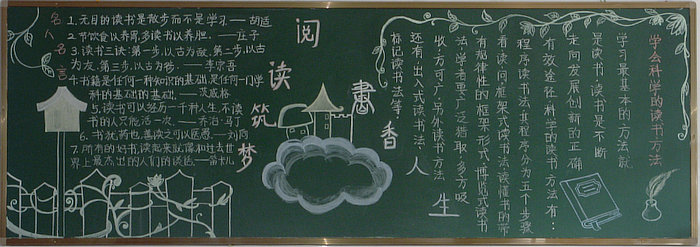 名人名言
1.无目的读书是散步而不是学习.——胡适
2.节饮食以养胃,多读书以养胆.——庄子
3.读书三诀:第一步,以古为敌,第二步,以古
为友,第三步,以古为师.——李宗吾
4.书籍是任何一种知识的基础,是任何一门学
科的基础的基础.——茨威格
5.读书可以经历一千种人生,不读
书的人只能活一次.——乔治·马丁
6.书犹药也,善读之可以医愚.——刘向
7.所有的好书,读起来就像和过去世
界上最杰出的人们的谈话.——笛卡儿
阅读筑梦
書香人生
学会科学的读书方法
学习最基本的方法就
是读书,读书是不断
走向发展创新的正确
有效途径.科学的读书方法有:
程序读书法,其程序分为五个步骤
看读问框架式读书法,读懂书的带
有规律性的框架形式,博览式读书
法,学者要广泛猎取,多方吸
收,方可广,另外读书方法
还有:出入式读书法,
标记读书法等.